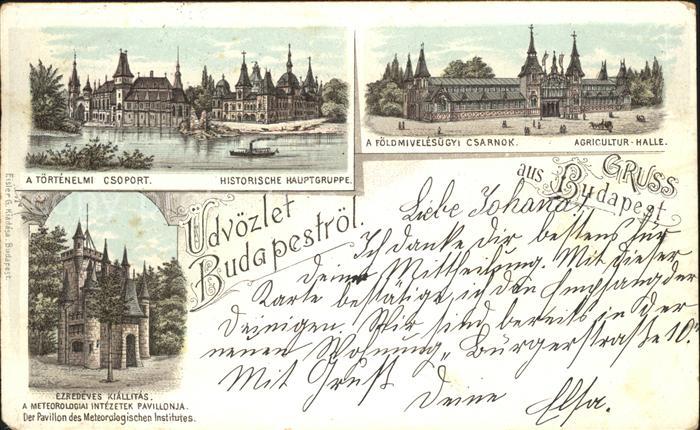 A TÖRTÉNELMI CSOPORT. HISTORISCHE HAUPTGRUPPE.
A FÖLDMIVELÉSÜGYI CSARNOK. AGRICULTUR-HALLE.
GRUSS
aus Budapest
Üdvözlet
Budapestről.
Eisler G. Kiadása, Budapest.
EZREDÉVES KIÁLLITÁS.
A METEOROLOGIAI INTÉZETEK PAVILLONJA.
Der Pavillon des Meteorologischen Institutes.
Liebe Johana!
Ich danke dir bestens für
deine Mittheilung. Mit dieser
Karte bestätige ich den Empfang der
Deinigen. Wir sind bereits in der
neuen Wohnung „Bürgerstraße 10.
Mit Gruß
Deine Elsa.